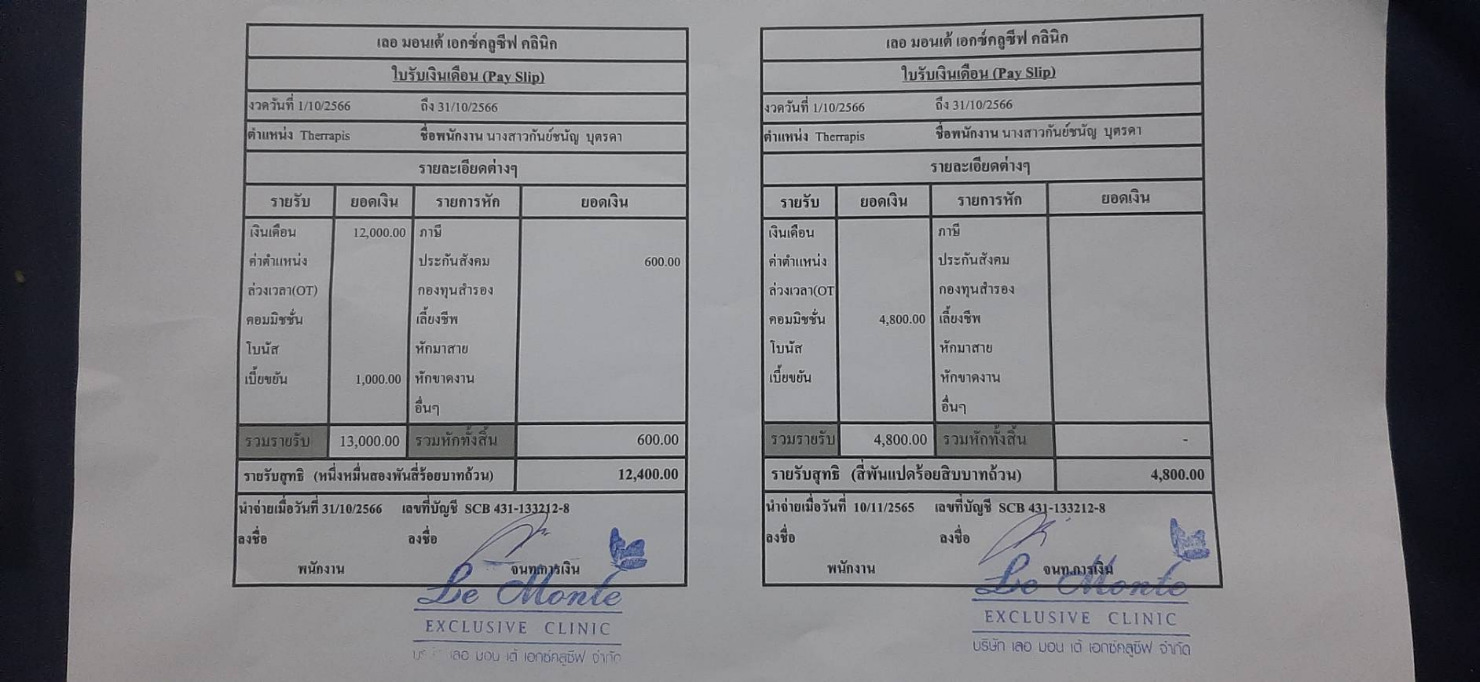 เลอ มอนเต้ เอกซ์คลูซีฟ คลินิก
ใบรับเงินเดือน (Pay Slip)
งวดวันที่ 1/10/2566 ถึง 31/10/2566
ตำแหน่ง Therrapis ชื่อพนักงาน นางสาวกันย์ชนัญ บุตรดา
รายละเอียดต่างๆ
รายรับ ยอดเงิน รายการหัก ยอดเงิน
เงินเดือน 12,000.00 ภาษี
ค่าตำแหน่ง ประกันสังคม 600.00
ล่วงเวลา(OT) กองทุนสำรอง
คอมมิชชั่น เลี้ยงชีพ
โบนัส หักมาสาย
เบี้ยขยัน 1,000.00 หักขาดงาน
อื่นๆ
รวมรายรับ 13,000.00 รวมหักทั้งสิ้น 600.00
รายรับสุทธิ (หนึ่งหมื่นสองพันสี่ร้อยบาทถ้วน) 12,400.00
นำจ่ายเมื่อวันที่ 31/10/2566 เลขที่บัญชี SCB 431-133212-8
ลงชื่อ ลงชื่อ
พนักงาน จนท.การเงิน
Le Monte
EXCLUSIVE CLINIC
เลอ มอน เต้ เอกซ์คลูซีฟ จำกัด
เลอ มอนเต้ เอกซ์คลูซีฟ คลินิก
ใบรับเงินเดือน (Pay Slip)
งวดวันที่ 1/10/2566 ถึง 31/10/2566
ตำแหน่ง Therrapis ชื่อพนักงาน นางสาวกันย์ชนัญ บุตรดา
รายละเอียดต่างๆ
รายรับ ยอดเงิน รายการหัก ยอดเงิน
เงินเดือน ภาษี
ค่าตำแหน่ง ประกันสังคม
ล่วงเวลา(OT กองทุนสำรอง
คอมมิชชั่น 4,800.00 เลี้ยงชีพ
โบนัส หักมาสาย
เบี้ยขยัน หักขาดงาน
อื่นๆ
รวมรายรับ 4,800.00 รวมหักทั้งสิ้น -
รายรับสุทธิ (สี่พันแปดร้อยสิบบาทถ้วน) 4,800.00
นำจ่ายเมื่อวันที่ 10/11/2565 เลขที่บัญชี SCB 431-133212-8
ลงชื่อ ลงชื่อ
พนักงาน จนท.การเงิน
Le Monte
EXCLUSIVE CLINIC
บริษัท เลอ มอน เต้ เอกซ์คลูซีฟ จำกัด